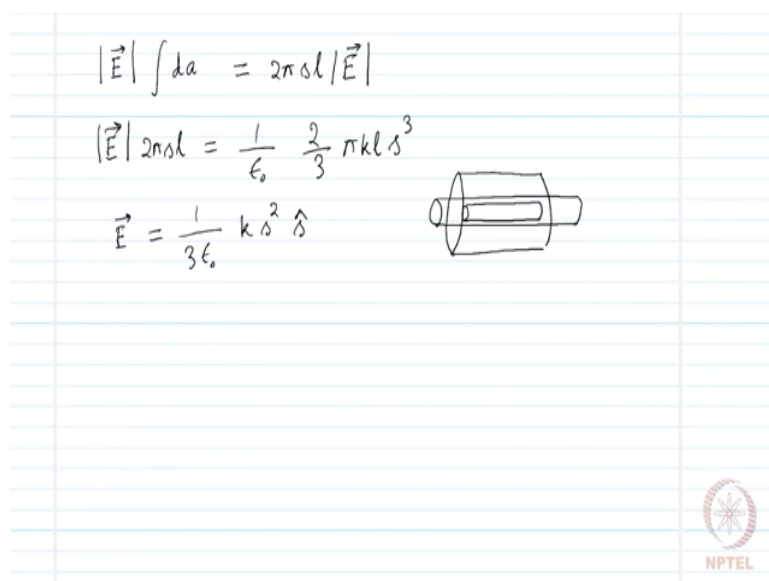 |E⃗| ∫ da = 2πsl|E⃗|
|E⃗| 2πsl = 1/ε₀ 2/3 πkl s³
E⃗ = 1/3ε₀ k s² ŝ
NPTEL